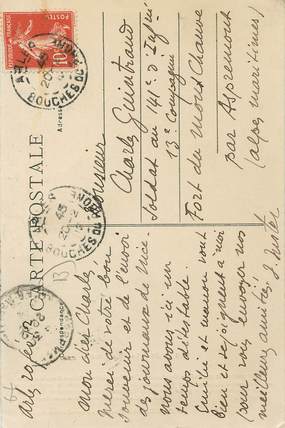 CARTE POSTALE
Correspondance
Adresse
REPUBLIQUE FRANÇAISE
10
ARLES
BOUCHES DU RHONE
ARLES
BOUCHES DU RHONE
Arles 20 fev
Mon cher Charles
Merci de votre bon
souvenir et de l'envoi
des journaux de Nice.
nous avons ici un
temps détestable.
Emilie et manon vont
bien et se joignent à moi
pour vous envoyer nos
meilleures amitiés.
Monsieur
Charles Guintrand
Soldat au 141e d'Infrie
13e Compagnie
Fort du Mont Chauve
par Aspremont
(alpes maritimes)